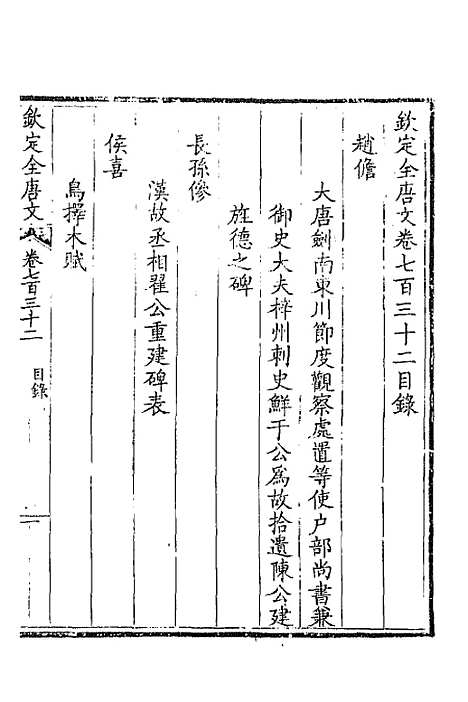 欽定全唐文卷七百三十二目錄
趙儋
大唐劍南東川節度觀察處置等使户部尚書兼
御史大夫梓州刺史鮮于公爲故拾遺陳公建
旌德之碑
長孫傪
漢故丞相翟公重建碑表
侯喜
鳥擇木賦
欽定全唐文
卷七百三十二
目錄
一